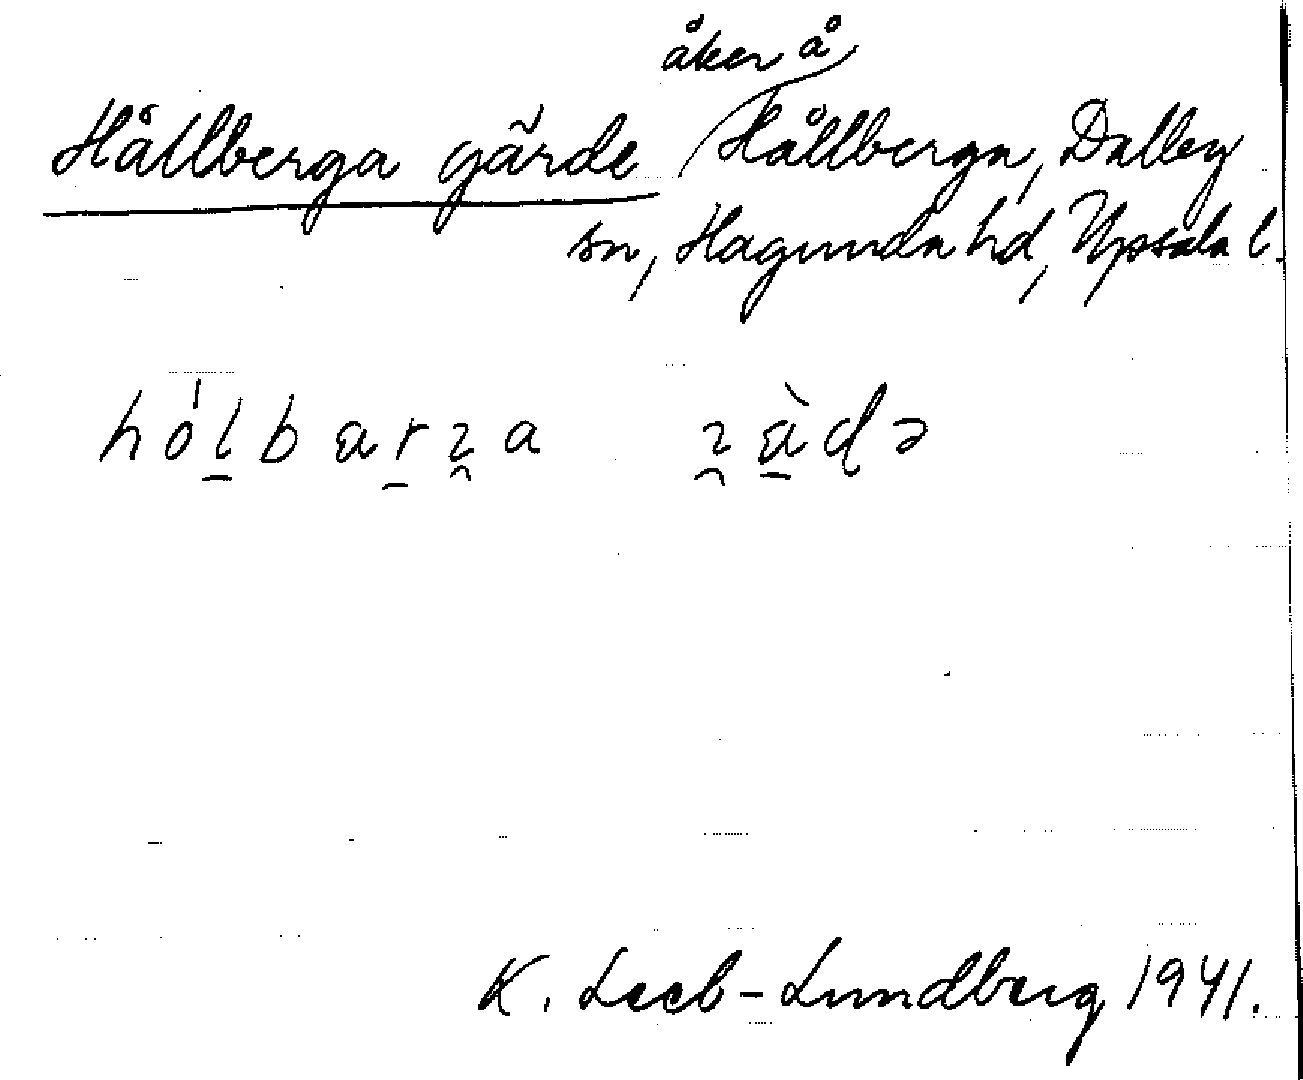 åker å
Hållberga gärde Hållberga, Dalby
sn, Hagunda hd, Upsala l.
hólbarʒa ʒàdə
K. Leeb-Lundberg 1941.